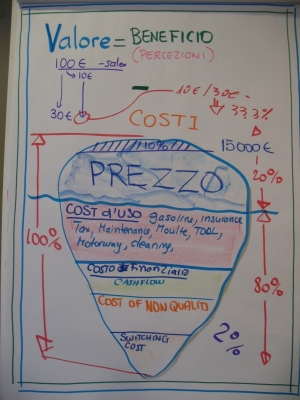 Valore = BENEFICIO
(PERCEZIONI)
100€ -sale
10€
30€
10€/30€ =
33,3%
COSTI
10%
15000€
PREZZO
20%
COST d'USO gasoline, insurance
Tax, Maintenance, Moulte, TOOL,
Motorway, cleaning,
100%
80%
COSTO Finanziario
CASHFLOW
COST OF NON QUALITY
SWITCHING
COST
2%